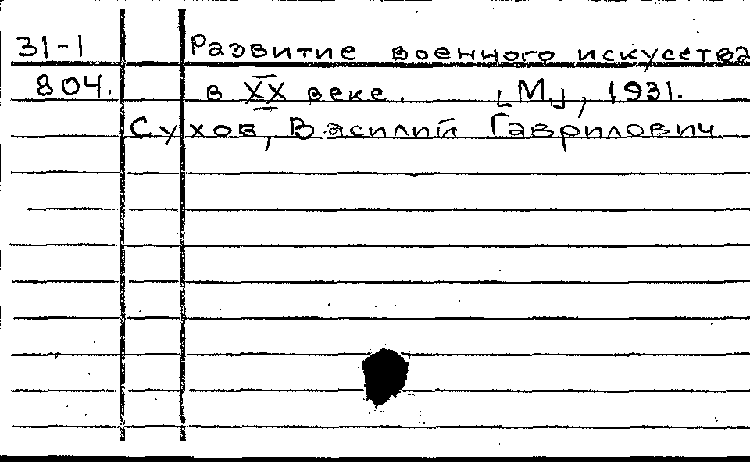 31-1 Развитие военного искусства
804. в XX веке. [М.], 1931.
Сухов, Василий Гаврилович